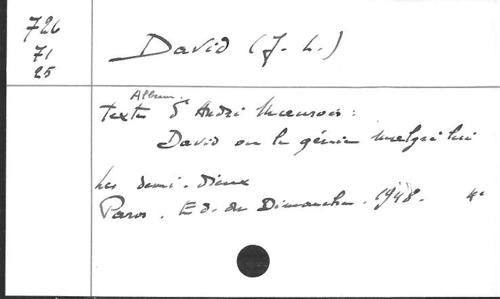 726
71
25
David (J. L.)
Album.
Texte d'André Maurois :
David ou le génie malgré lui
Les demi-dieux
Paris. Ed. du Dimanche. 1948. 4°